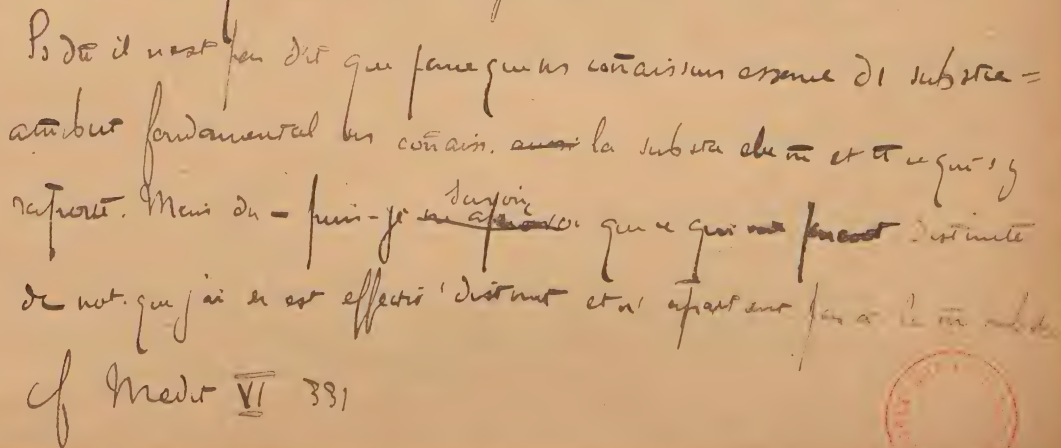 Ps du il n'est pas dit que parce que ns coñaissons essence de substce =
attribut fondamental ns coñaiss. aussi la substce elle m̄ et tt ce qui s'y
rapporte. Mais du - puis-je savoir que ce qui distincte
de not. que j'ai en est effectiv' distinct et n'appartient pas à la m̄
cf Medit VI 331